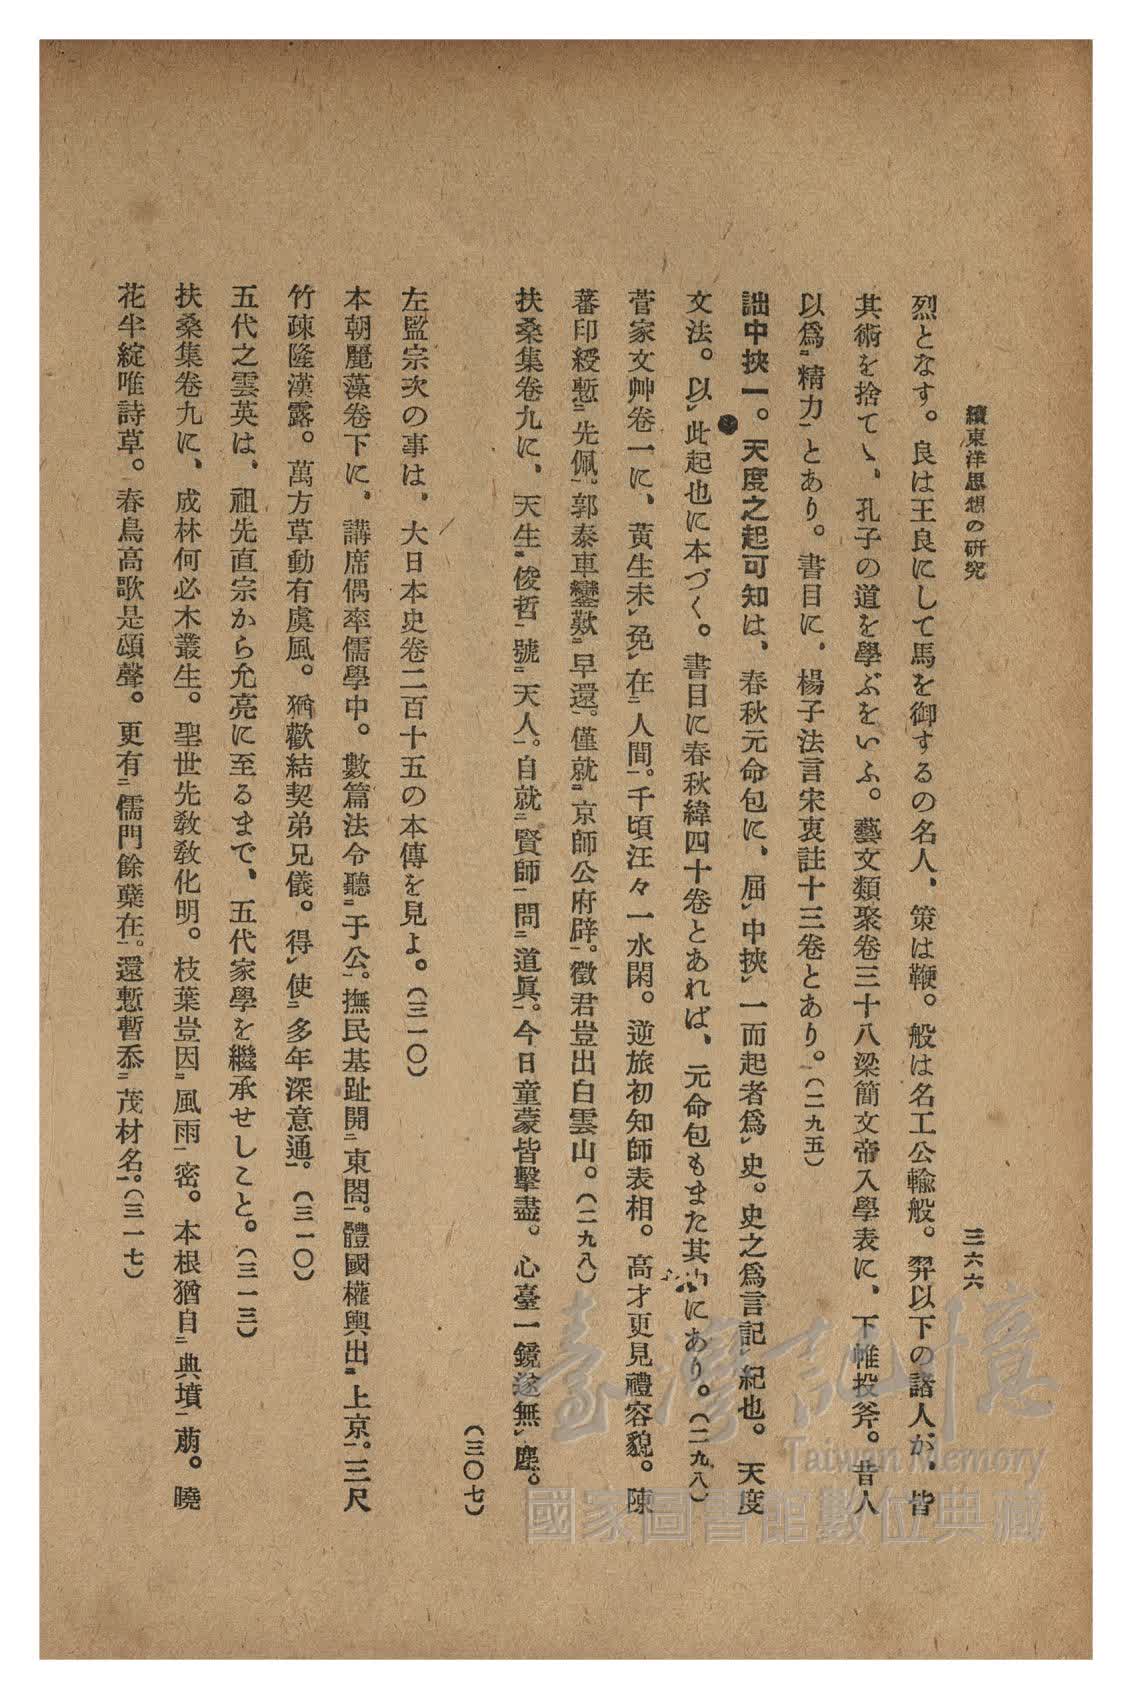 續東洋思想の研究
三六六
烈となす。良は王良にして馬を御するの名人、策は鞭。般は名工公輸般。羿以下の諸人が、皆
其術を捨てゝ、孔子の道を學ぶをいふ。藝文類聚卷三十八梁簡文帝入學表に、下帷投斧。昔人
以爲精力とあり。書目に、楊子法言宋衷註十三卷とあり。（二九五）
詘中挾一。天度之起可知は、春秋元命包に、屈中挾一而起者爲史。史之爲言記紀也。天度
文法。以此起也に本づく。書目に春秋緯四十卷とあれば、元命包もまた其にあり。（二九八）
菅家文艸卷一に、黄生未免在人間。千頃汪々一水閑。逆旅初知師表相。高才更見禮容貌。陳
蕃印綬慙先佩。郭泰車鑾歎早還。僅就京師公府辟。徵君豈出白雲山。（二九八）
扶桑集卷九に、天生俊哲號天人。自就賢師問道眞。今日童蒙皆擊盡。心臺一鏡遂無塵。
（三〇七）
左監宗次の事は、大日本史卷二百十五の本傳を見よ。（三一〇）
本朝麗藻卷下に、講席偶率儒學中。數篇法令聽于公。撫民基趾開東閤。體國權輿出上京。三尺
竹疎隆漢露。萬方草動有虞風。猶歡結契弟兄儀。得使多年深意通。（三一〇）
五代之雲英は、祖先直宗から允亮に至るまで、五代家學を繼承せしこと。（三一三）
扶桑集卷九に、成林何必木叢生。聖世先敎敎化明。枝葉豈因風雨密。本根猶自典墳萠。曉
花半綻唯詩草。春鳥高歌是頌聲。更有儒門餘蘖在。還慙暫忝茂材名。（三一七）
臺灣記憶
Taiwan Memory
國家圖書館數位典藏